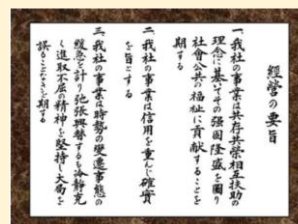 経営の要旨
一、我社の事業は共存共栄相互扶助の
理念に基いてその強固隆盛を図り
社會公共の福祉に貢献することを
期する
二、我社の事業は信用を重んじ確實
を旨とする
三、我社の事業は時勢の變遷事態の
緩急を計り弛張興替するも冷静克
く進取不屈の精神を堅持し大局を
誤ることなきを期する